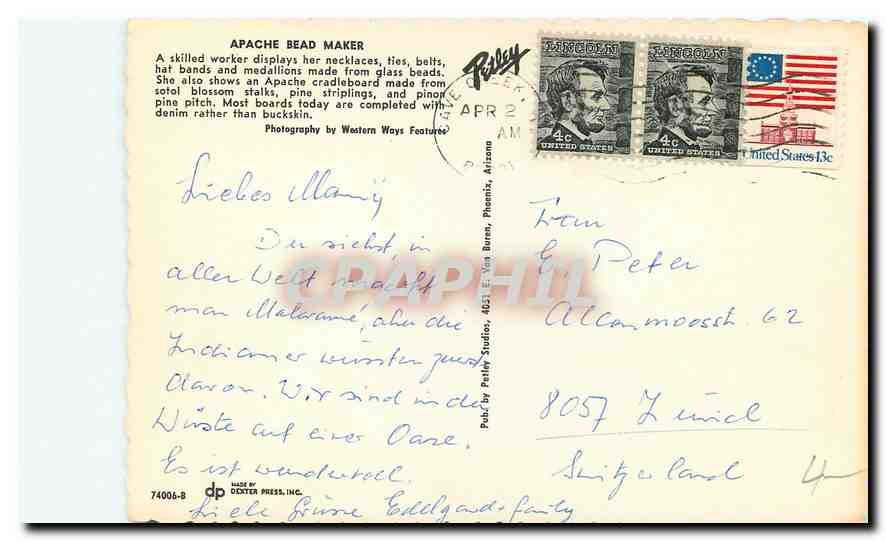 APACHE BEAD MAKER
A skilled worker displays her necklaces, ties, belts,
hat bands and medallions made from glass beads.
She also shows an Apache cradleboard made from
sotol blossom stalks, pine striplings, and pinon
pine pitch. Most boards today are completed with
denim rather than buckskin.
Photography by Western Ways Features
Petley
CAVE CREEK
APR 2
AM
LINCOLN
4c
UNITED STATES
LINCOLN
4c
UNITED STATES
United States 13c
Liebes
Du siehst, in
aller Welt
man Makramé, aber die
Indianer wussten zuerst
davon. Wir sind in der
Wüste auf einer Oase.
Es ist wundervoll.
Liebe Grüsse Edelgard + family
Pub. by Petley Studios, 4051 E. Van Buren, Phoenix, Arizona
Frau
E. Peter
Allenmoosstr. 62
8057 Zürich
Switzerland
4
74006-B
dp MADE BY
DEXTER PRESS, INC.
CPAPHIL